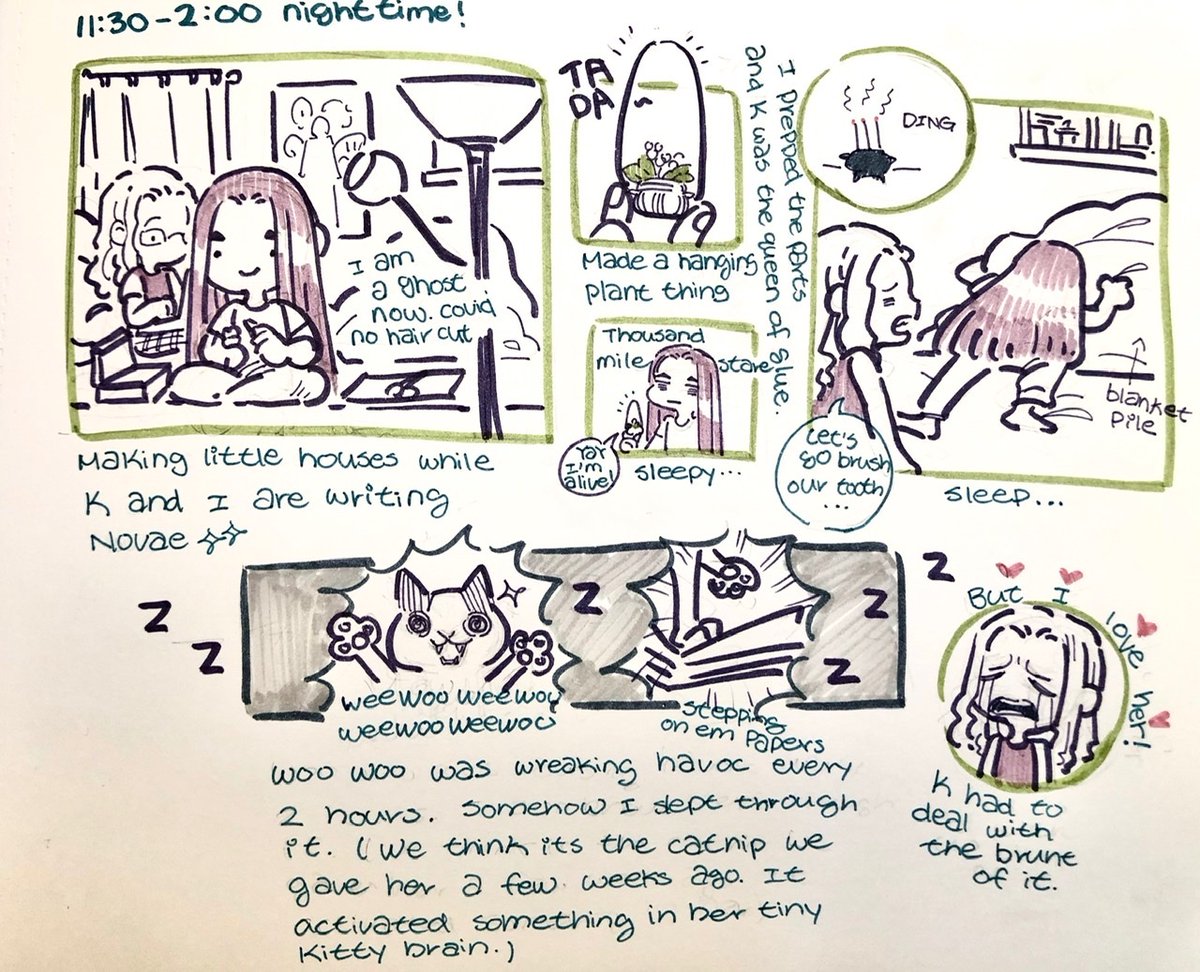 11:30-2:00 nighttime!
I am
a ghost
now. covid
no hair cut
Making little houses while
K and I are writing
Novae
TA
DA
Made a hanging
plant thing
I prepped the parts
and K was the queen of glue.
Thousand
mile stare
Yay
I'm
alive!
sleepy...
DING
blanket
pile
Let's
go brush
our tooth
...
sleep...
Z
Z
Z
Z
Z
Z
weewoo weewoo
weewooweewoo
Stepping
on em papers
woo woo was wreaking havoc every
2 hours. Somehow I slept through
it. (We think its the catnip we
gave her a few weeks ago. It
activated something in her tiny
kitty brain.)
But I love her!
K had to
deal with
the brunt
of it.